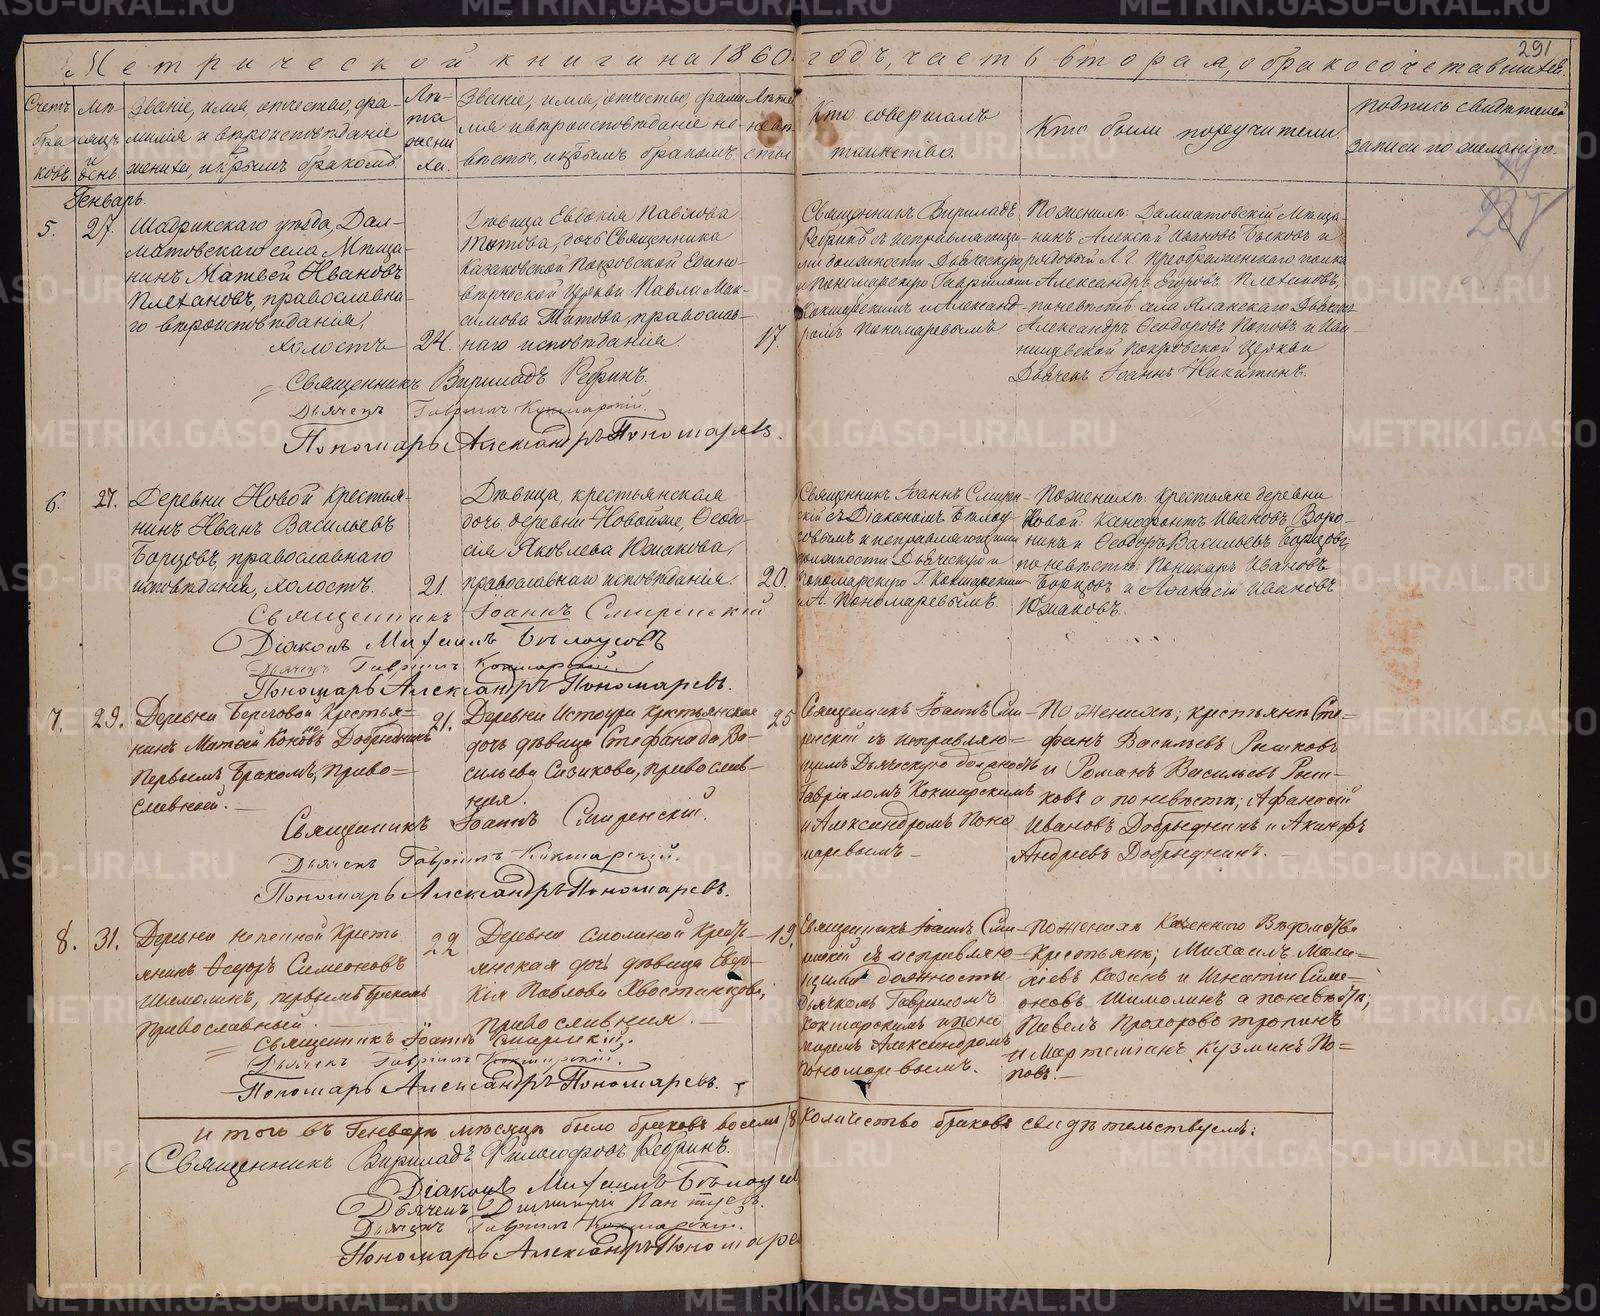 Метрической книги на 1860 годъ, часть вторая, о бракосочетавшихся.
291
Счетъ браковъ.
Мѣсяцъ и день.
Званіе, имя, отчество, фамилія и вѣроисповѣданіе жениха, и которымъ бракомъ
Лѣта жениха.
Званіе, имя, отчество, фамилія и вѣроисповѣданіе невѣсты, и которымъ бракомъ
Лѣта невѣсты
Кто совершалъ таинство.
Кто были поручители.
Подпись свидѣтелей записи по желанію.
Генварь.
5.
27.
Шадринскаго уѣзда, Дал-
матовскаго села Мѣща-
нинъ Матвей Ивановъ
Плехановъ, православна-
го вѣроисповѣданія,
холостъ
24.
Дѣвица Евдокія Павлова
Титова, дочь Священника
Казаковской Покровской Едино-
вѣрческой Церкви Павла Мак-
симова Титова, православ-
наго исповѣданія.
17.
Священникъ Вириладъ
Рединъ съ исправляющи-
ми должности Дьяческую
и пономарскую Гавріиломъ
Кокшарскимъ и Александ-
ромъ Пономаревымъ
По женихѣ: Далматовскій Мѣща-
нинъ Алексѣй Ивановъ Быковъ и
рядовый Л. Г. Преображенскаго полка
Александръ Егоровъ Плехановъ,
по невѣстѣ села Яланскаго Дьячекъ
Александръ Ѳеодоровъ Поповъ и
Покровской Церкви
Дьячекъ Іоаннъ Никитинъ.
Священникъ Вириладъ Рединъ.
Дьячекъ Гавріилъ Кокшарскій.
Пономарь Александръ Пономаревъ.
6.
27.
Деревни Новой Крестья-
нинъ Иванъ Васильевъ
Борцовъ, православнаго
исповѣданія, холостъ.
21.
Дѣвица, крестьянская
дочь деревни Новой же, Ѳеодо-
сія Яковлева Южакова,
православнаго исповѣданія.
20.
Священникъ Іоаннъ Смирен-
скій съ Діакономъ Бѣлоу-
совымъ и исправляющими
должности Дьяческую и
пономарскую Г. Кокшарскимъ
и А. Пономаревымъ.
По женихѣ: крестьяне деревни
Новой Ивановъ Воро-
нинъ и Ѳеодоръ Васильевъ Борцовъ;
по невѣстѣ: Ивановъ
Борцовъ и Аѳанасій Ивановъ
Южаковъ.
Священникъ Іоаннъ Смиренскій
Діаконъ Михаилъ Бѣлоусовъ
Дьячекъ Гавріилъ Кокшарскій.
Пономарь Александръ Пономаревъ.
7.
29.
Деревни Береговой Крестья-
нинъ Матвей Кононовъ Добрыднинъ
Первымъ Бракомъ, Право-
славной.
21.
Деревни Истоури Крстьянская
дочь дѣвица Стефанада Ва-
сильева Сизикова, Православ-
ная.
25
Священникъ Іоаннъ Сми-
ренскій съ исправляю-
щимъ Дьяческую должность
Гавріиломъ Кокшарскимъ
и Александромъ Поно
маревымъ
По женихѣ; крестьянъ Сте-
фанъ Васильевъ Рышковъ
и Романъ Васильевъ Рыш-
ковъ а по невѣсти; Афанасій
Ивановъ Добрыднинъ и Акинфъ
Андреевъ Добрыднинъ.
Священникъ Іоаннъ Смиренскій.
Дьячекъ Гавріилъ Кокшарскій.
Пономарь Александръ Пономаревъ.
8.
31.
Деревни Непеиной Кресть
янинъ Ѳедоръ Симеоновъ
Шимолинъ, первымъ бракомъ
Православный.
22
Деревни Смолиной Кресть-
янская дочь дѣвица Евдо-
кія Павлова Хвостанцова,
православная.
19.
Священникъ Іоаннъ Сми-
ренскій съ исправляю-
щими должности
Дьячкомъ Гавріиломъ
Кокшарскимъ и поно
маремъ Александромъ
Пономаревымъ.
По женихѣ Казеннаго Вѣдомства
Крестьянъ; Михаилъ Мала-
хіевъ Казанъ и Игнатій Симе-
оновъ Шимолинъ а по невѣсти;
Павелъ Прохоровъ Тропинъ
и Мартеміанъ Кузминъ По-
повъ.
Священникъ Іоаннъ Смиренскій.
Дьячекъ Гавріилъ Кокшарскій.
Пономарь Александръ Пономаревъ.
Итого въ Генварѣ мѣсяцѣ было браковъ восемь /8 количество браковъ свидѣтельствуемъ:
Священникъ Вириладъ Философовъ Рединъ.
Діаконъ Михаилъ Бѣлоусов
Дьячекъ Димитрій Пантуевъ.
Дьячекъ Гавріилъ Кокшарскій.
Пономарь Александръ Пономаре
METRIKI.GASO-URAL.RU